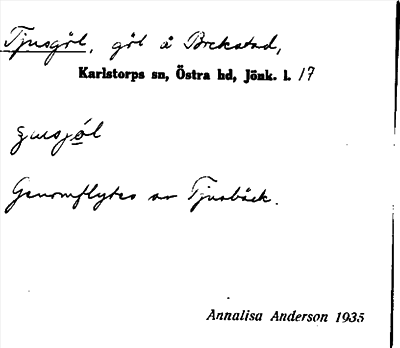 Tjusgöl, göl å Brekstad,
Karlstorps sn, Östra hd, Jönk. l. 17
Genomflytes av Tjusbäck.
Annalisa Anderson 1935